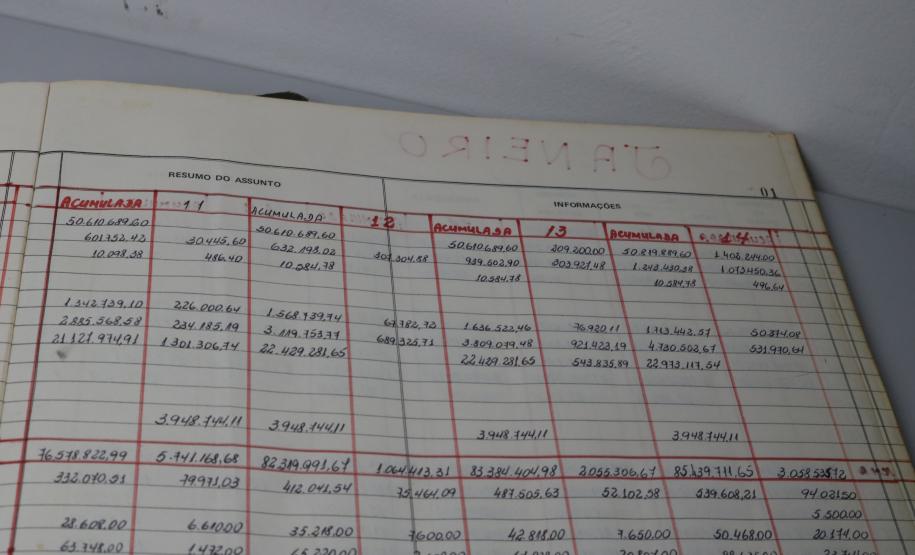 JANEIRO
RESUMO DO ASSUNTO INFORMAÇÕES 01
ACUMULADA 11 ACUMULADA 12 ACUMULADA 13 ACUMULADA
50.610.689.60 50.610.689.60 50.610.689.60 209.200.00 50.819.889.60 1.408.244.00
601.752.42 30.445.60 632.198.02 307.304.88 939.602.90 303.927.48 1.073.450.36
10.098.38 486.40 10.584.78 10.584.78 10.584.78 496.64
1.342.739,10 226.000.64 1.568.739,74 67.782,72 1.636.522,46 76.920,11 1.713.442.57 50.374.08
2.885.568.58 234.185.19 3.119.753,77 689.325,71 3.809.079.48 921.423,19 4.730.502,67 531.970,64
21.127.974,91 1.301.306,74 22.429.281,65 22.429.281,65 543.835,89 22.973.117,54
3.948.744.11 3.948.744.11 3.948.744.11 3.948.744.11
76.578.822,99 5.741.168,68 82.319.991,67 1.064.413.31 83.384.404,98 2.055.306,67 85.439.711,65
332.070.51 79.971,03 412.041,54 75.464.09 487.505,63 52.102,58 539.608,21 94.021.50
5.500.00
28.608.00 6.610.00 35.218.00 7.600.00 42.818.00 7.650.00 50.468.00 20.174.00
63.748.00 1.472.00